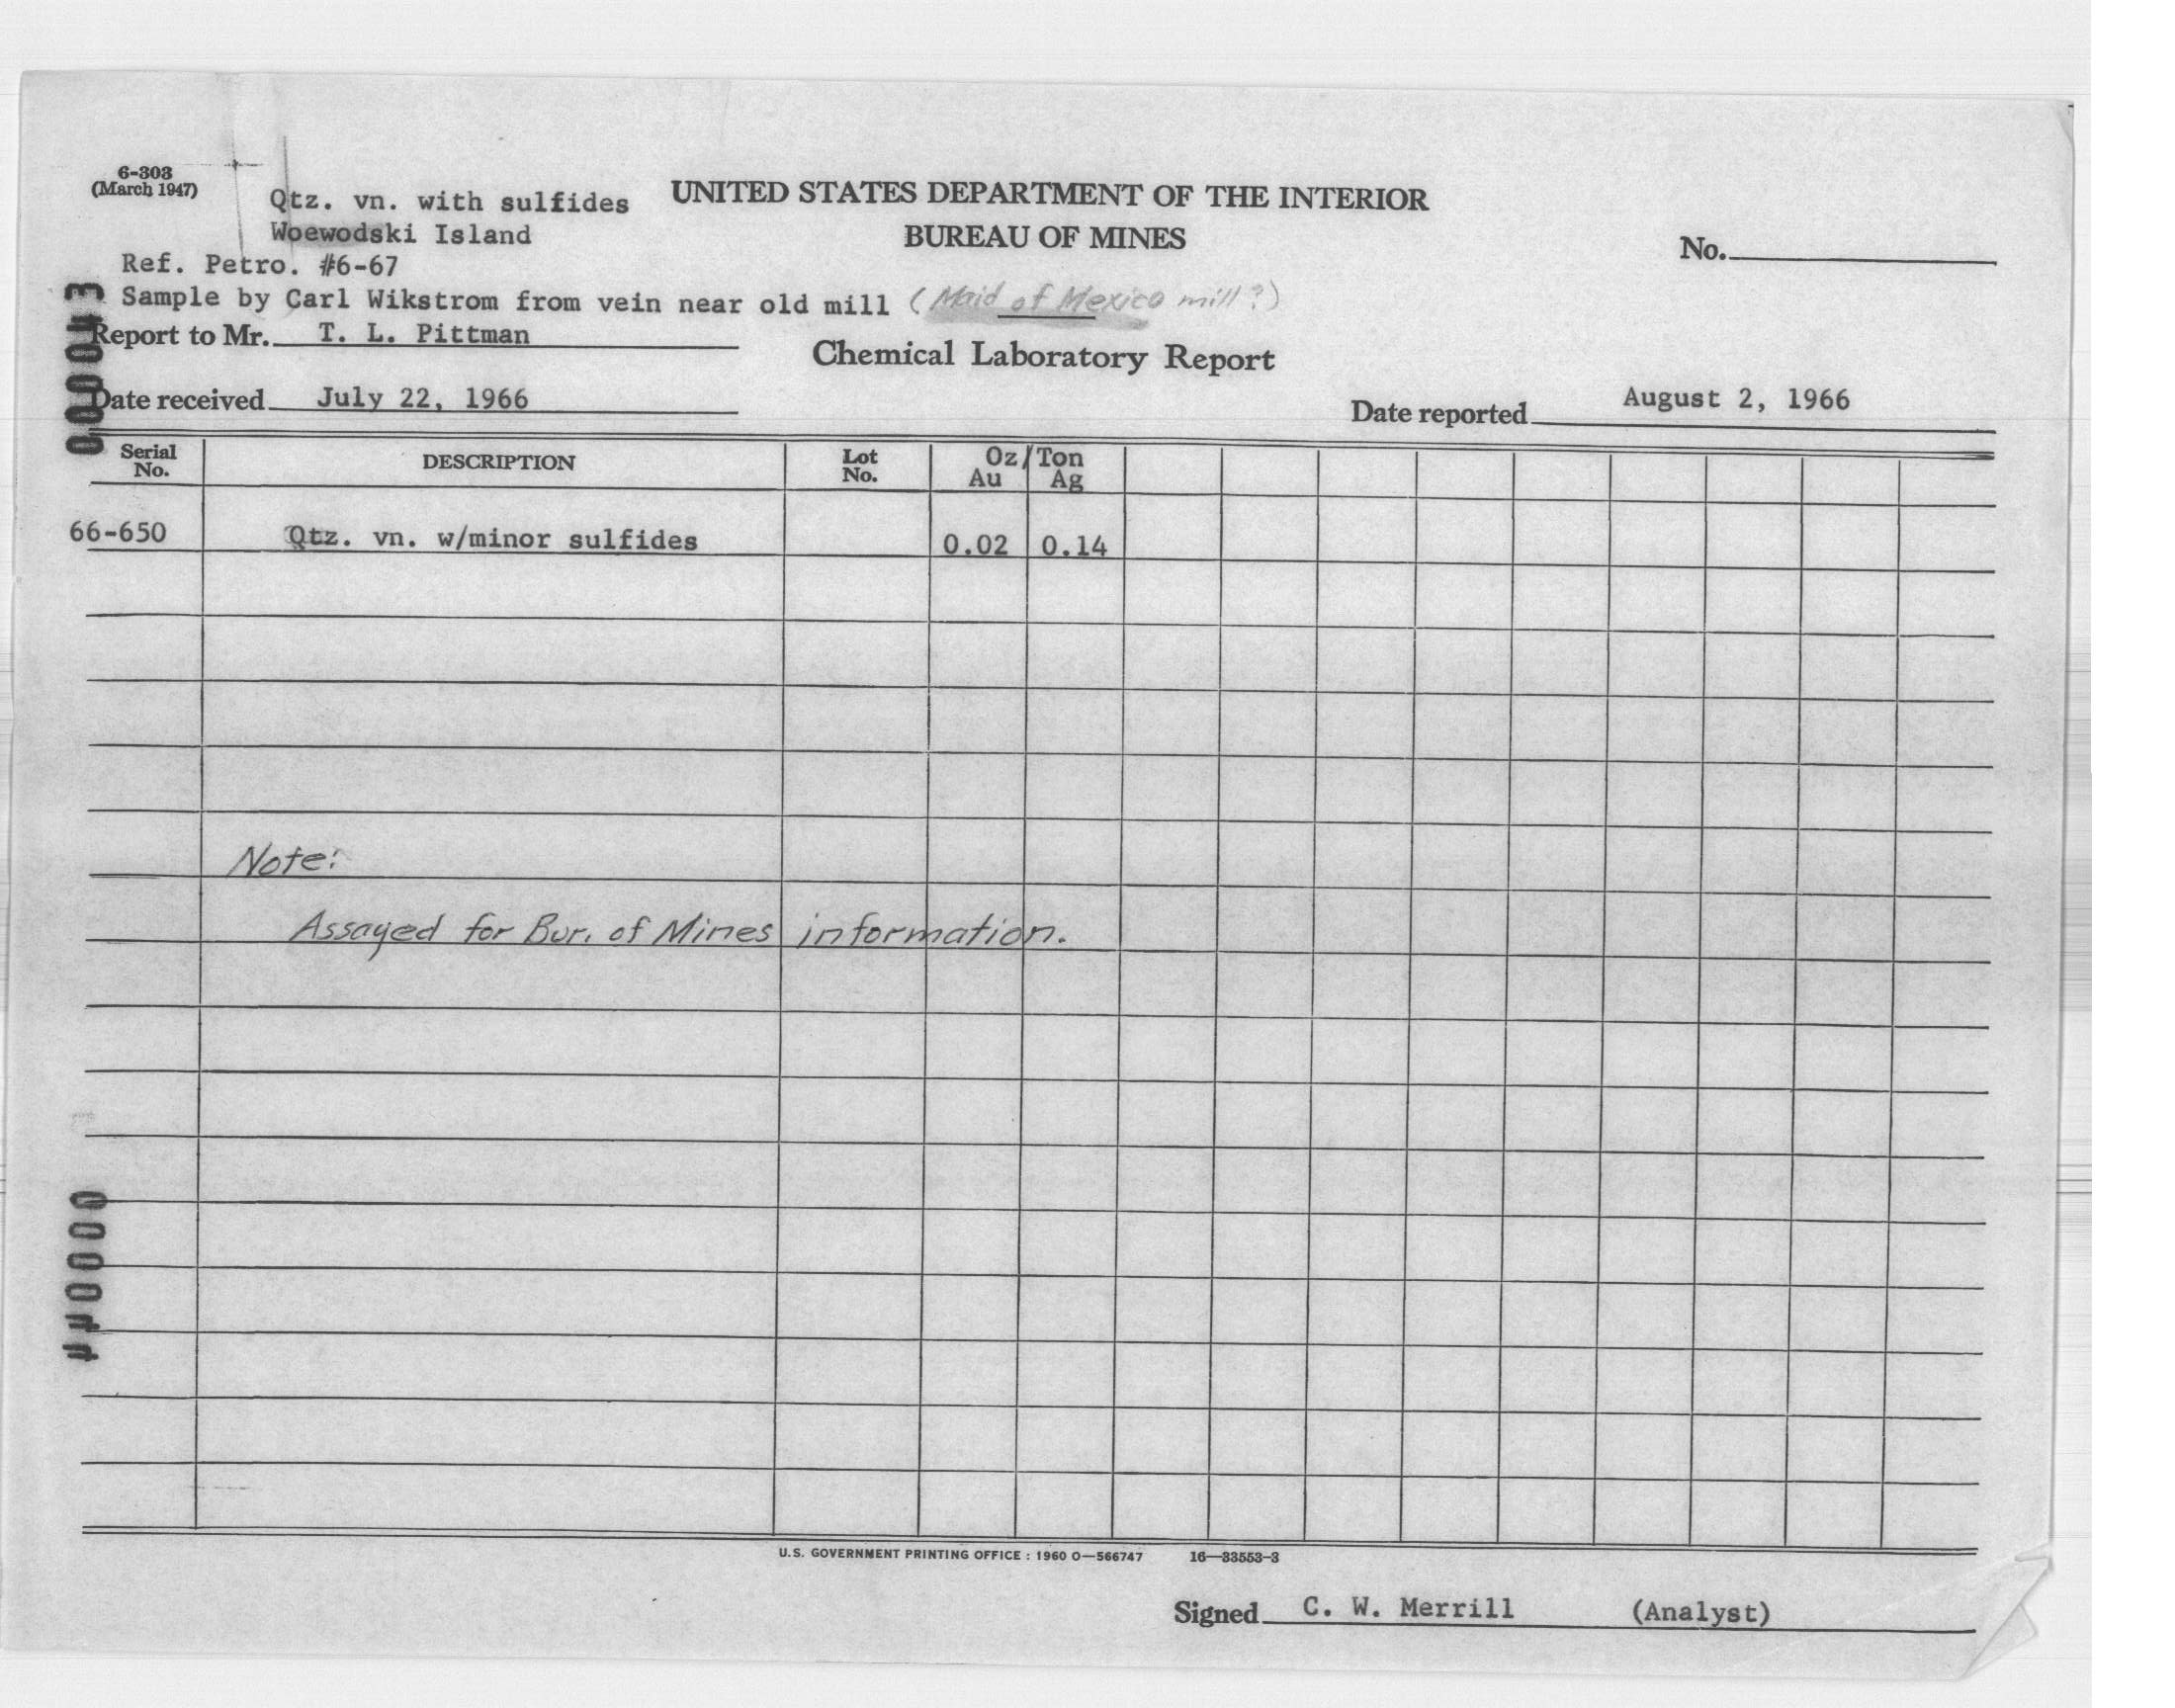 6-303
(March 1947)
Qtz. vn. with sulfides
Woewodski Island
Ref. Petro. #6-67
Sample by Carl Wikstrom from vein near old mill (Maid of Mexico mill?)
UNITED STATES DEPARTMENT OF THE INTERIOR
BUREAU OF MINES
No.
Report to Mr. T. L. Pittman
Chemical Laboratory Report
Date received July 22, 1966
Date reported August 2, 1966
Serial No. DESCRIPTION Lot No. Oz/Ton
Au Ag
66-650 Qtz. vn. w/minor sulfides 0.02 0.14
Note:
Assayed for Bur. of Mines information.
U.S. GOVERNMENT PRINTING OFFICE : 1960 O—566747 16—33553-3
Signed C. W. Merrill (Analyst)